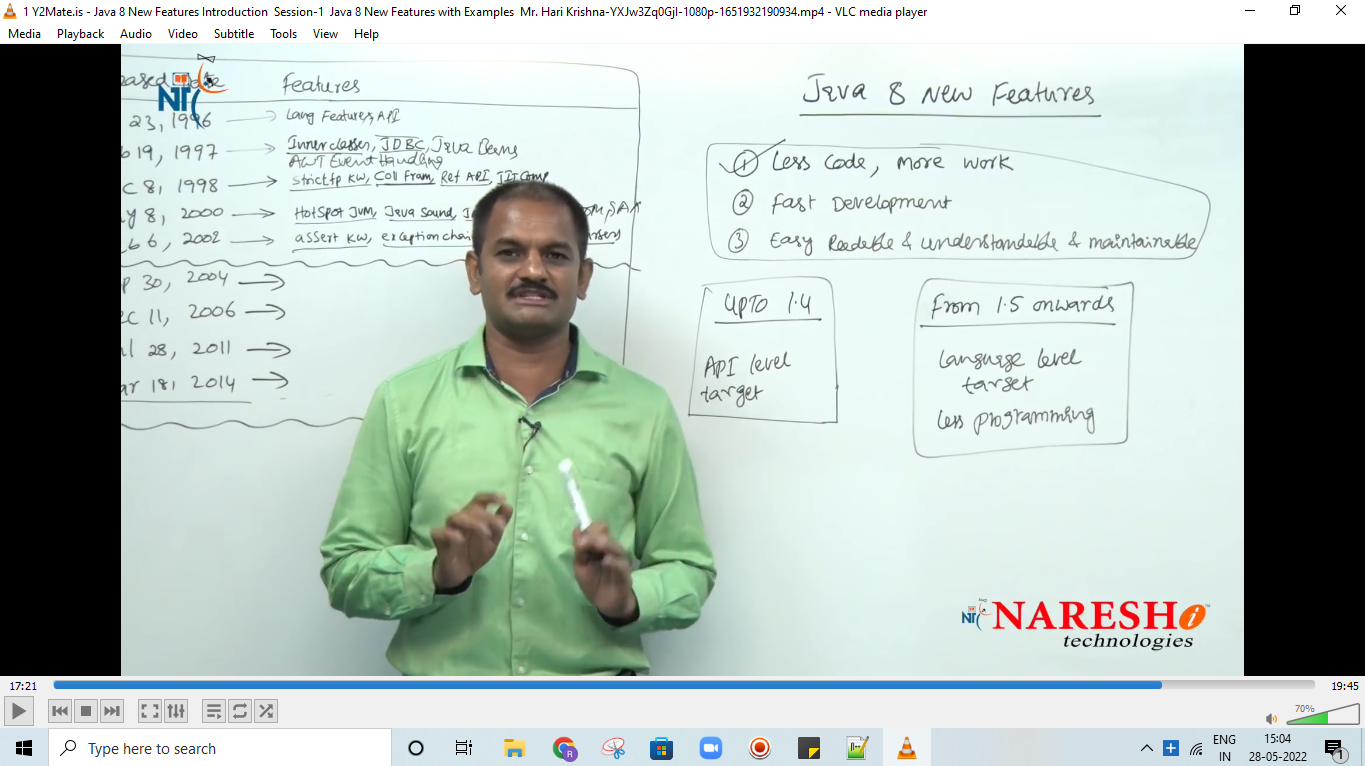 1 Y2Mate.is - Java 8 New Features Introduction Session-1 Java 8 New Features with Examples Mr. Hari Krishna-YXJw3Zq0GjI-1080p-1651932190934.mp4 - VLC media player
Media Playback Audio Video Subtitle Tools View Help
Features
23, 1996 Lang Features, API
19, 1997 Inner classes, JDBC, Java Beans
AWT Event Handling
c 8, 1998 strictfp KW, Coll Fram, Ref API, JIT Comp
y 8, 2000 HotSpot JVM, Java Sound,
b 6, 2002 assert KW, exception chai
p 30, 2004
ec 11, 2006
l 28, 2011
ar 18, 2014
Java 8 New Features
1 Less Code, more work
2 Fast Development
3 Easy Readable & understandable & maintainable
UPTO 1.4
API level
target
From 1.5 onwards
Language level
target
less programming
NT
NARESH i
technologies
17:21
19:45
70%
Type here to search
ENG
IN
15:04
28-05-2022
1